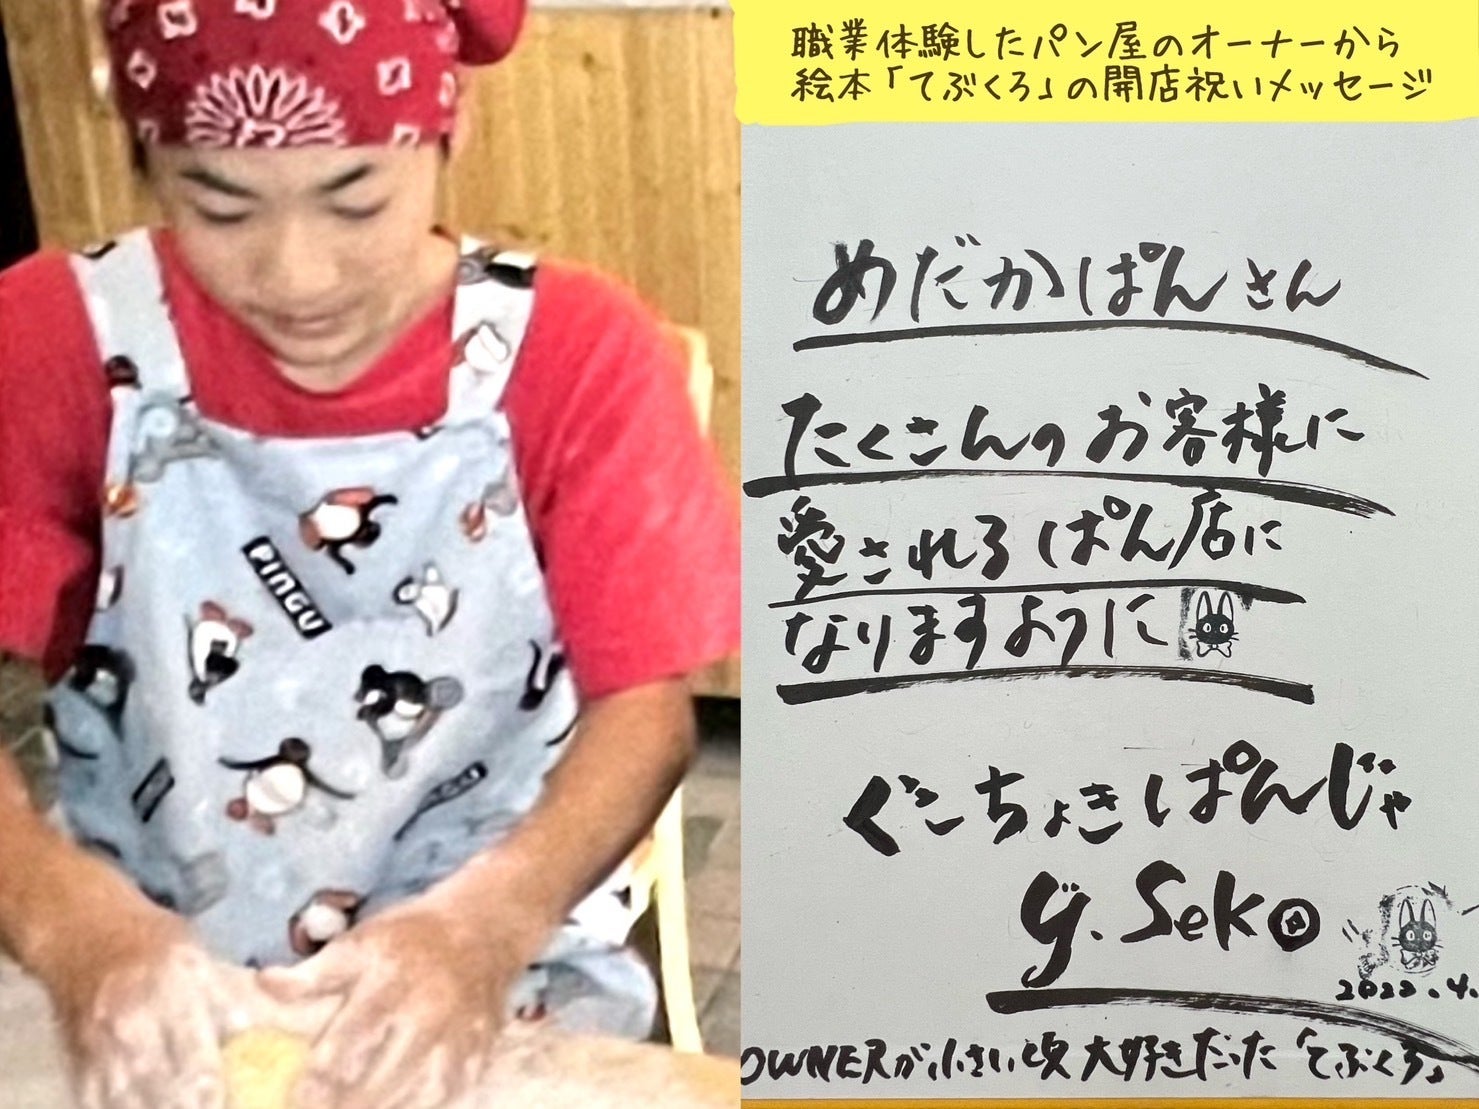 職業体験したパン屋のオーナーから
絵本「てぶくろ」の開店祝いメッセージ
めだかぱんさん
たくさんのお客様に
愛されるぱん店に
なりますように
ぐーちょきぱんじゃ
y. Seko
2022.4.
OWNERが小さい頃大好きだった「てぶくろ」
PINGU